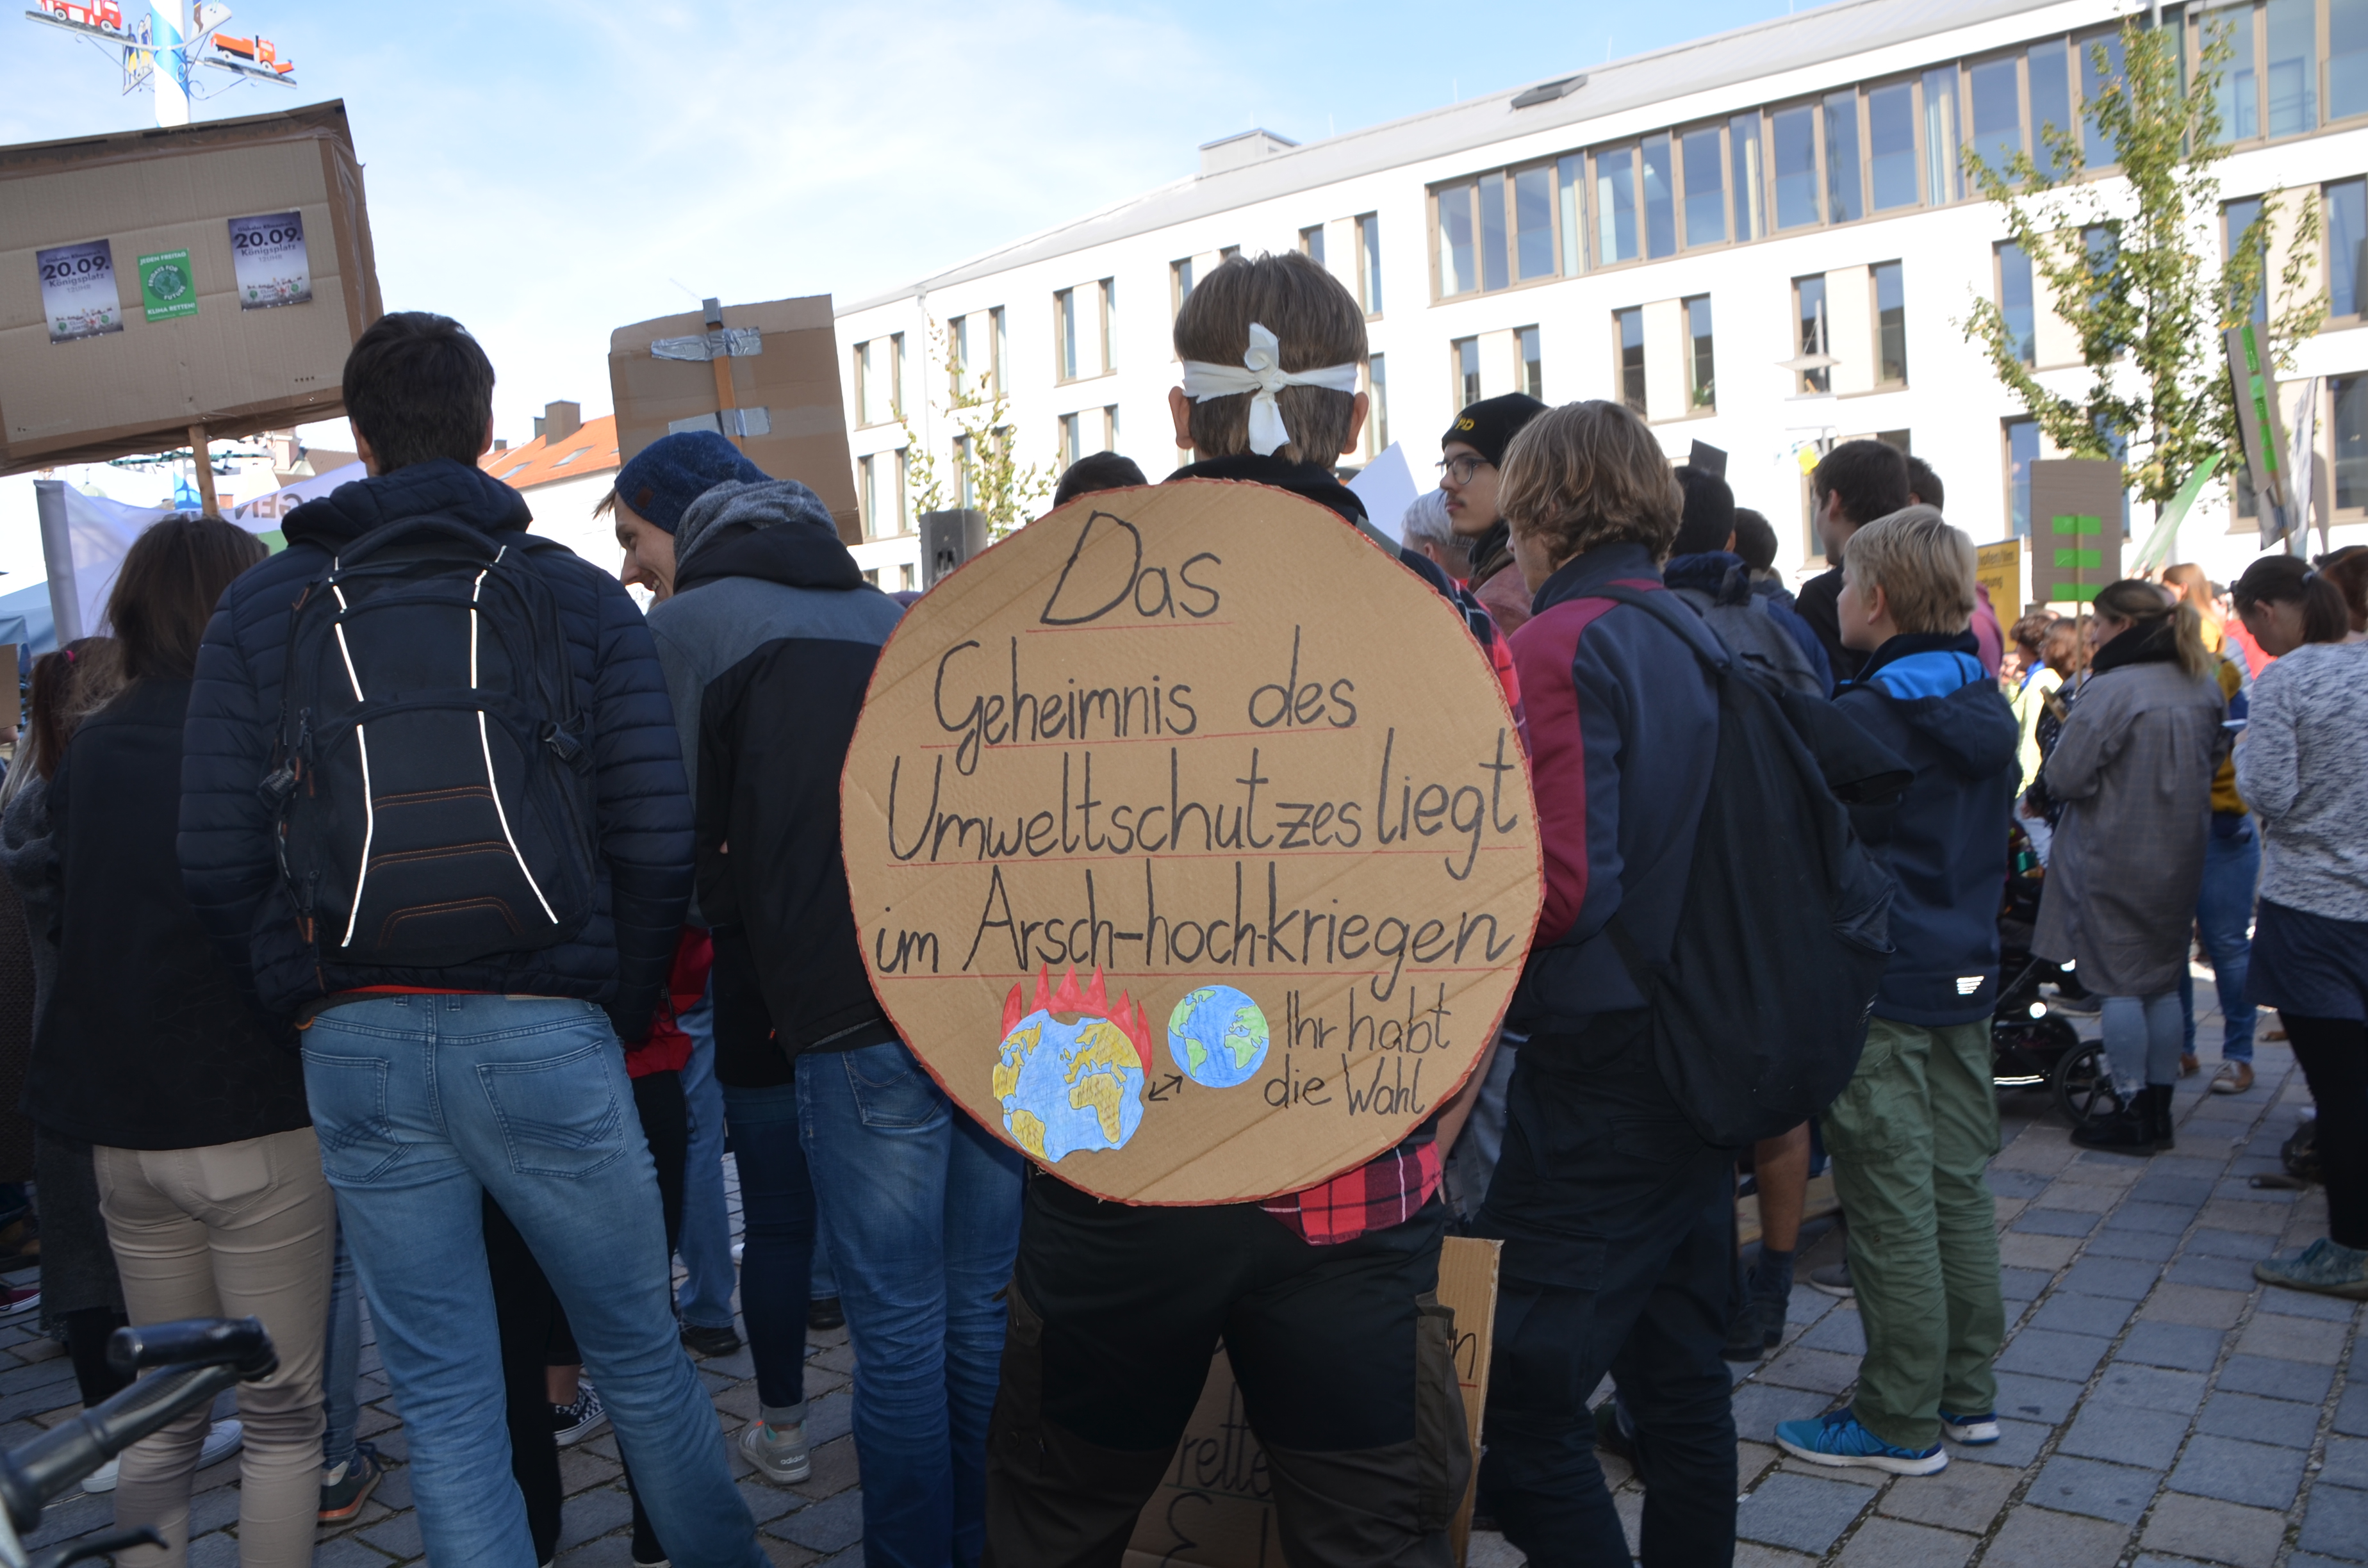 20.09.
Königsplatz
12UHR
JEDEN FREITAG
FRIDAYS FOR
FUTURE
KLIMA RETTEN!
20.09.
Königsplatz
12UHR
Das
Geheimnis des
Umweltschutzes liegt
im Arsch-hoch-kriegen
Ihr habt
die Wahl
adidas